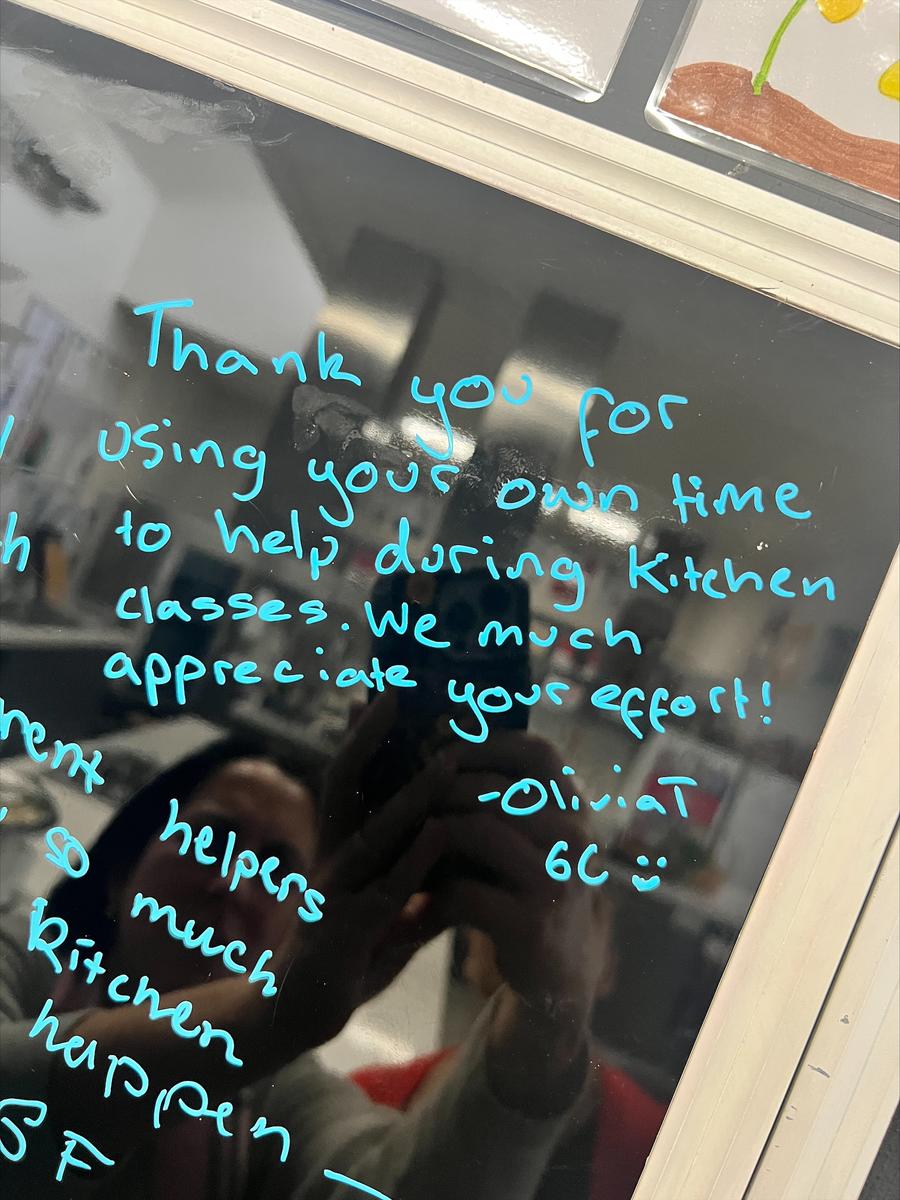 Thank you for
using your own time
to help during Kitchen
classes. We much
appreciate your effort!
-Olivia T
6C
helpers
so much
Kitchen
happen